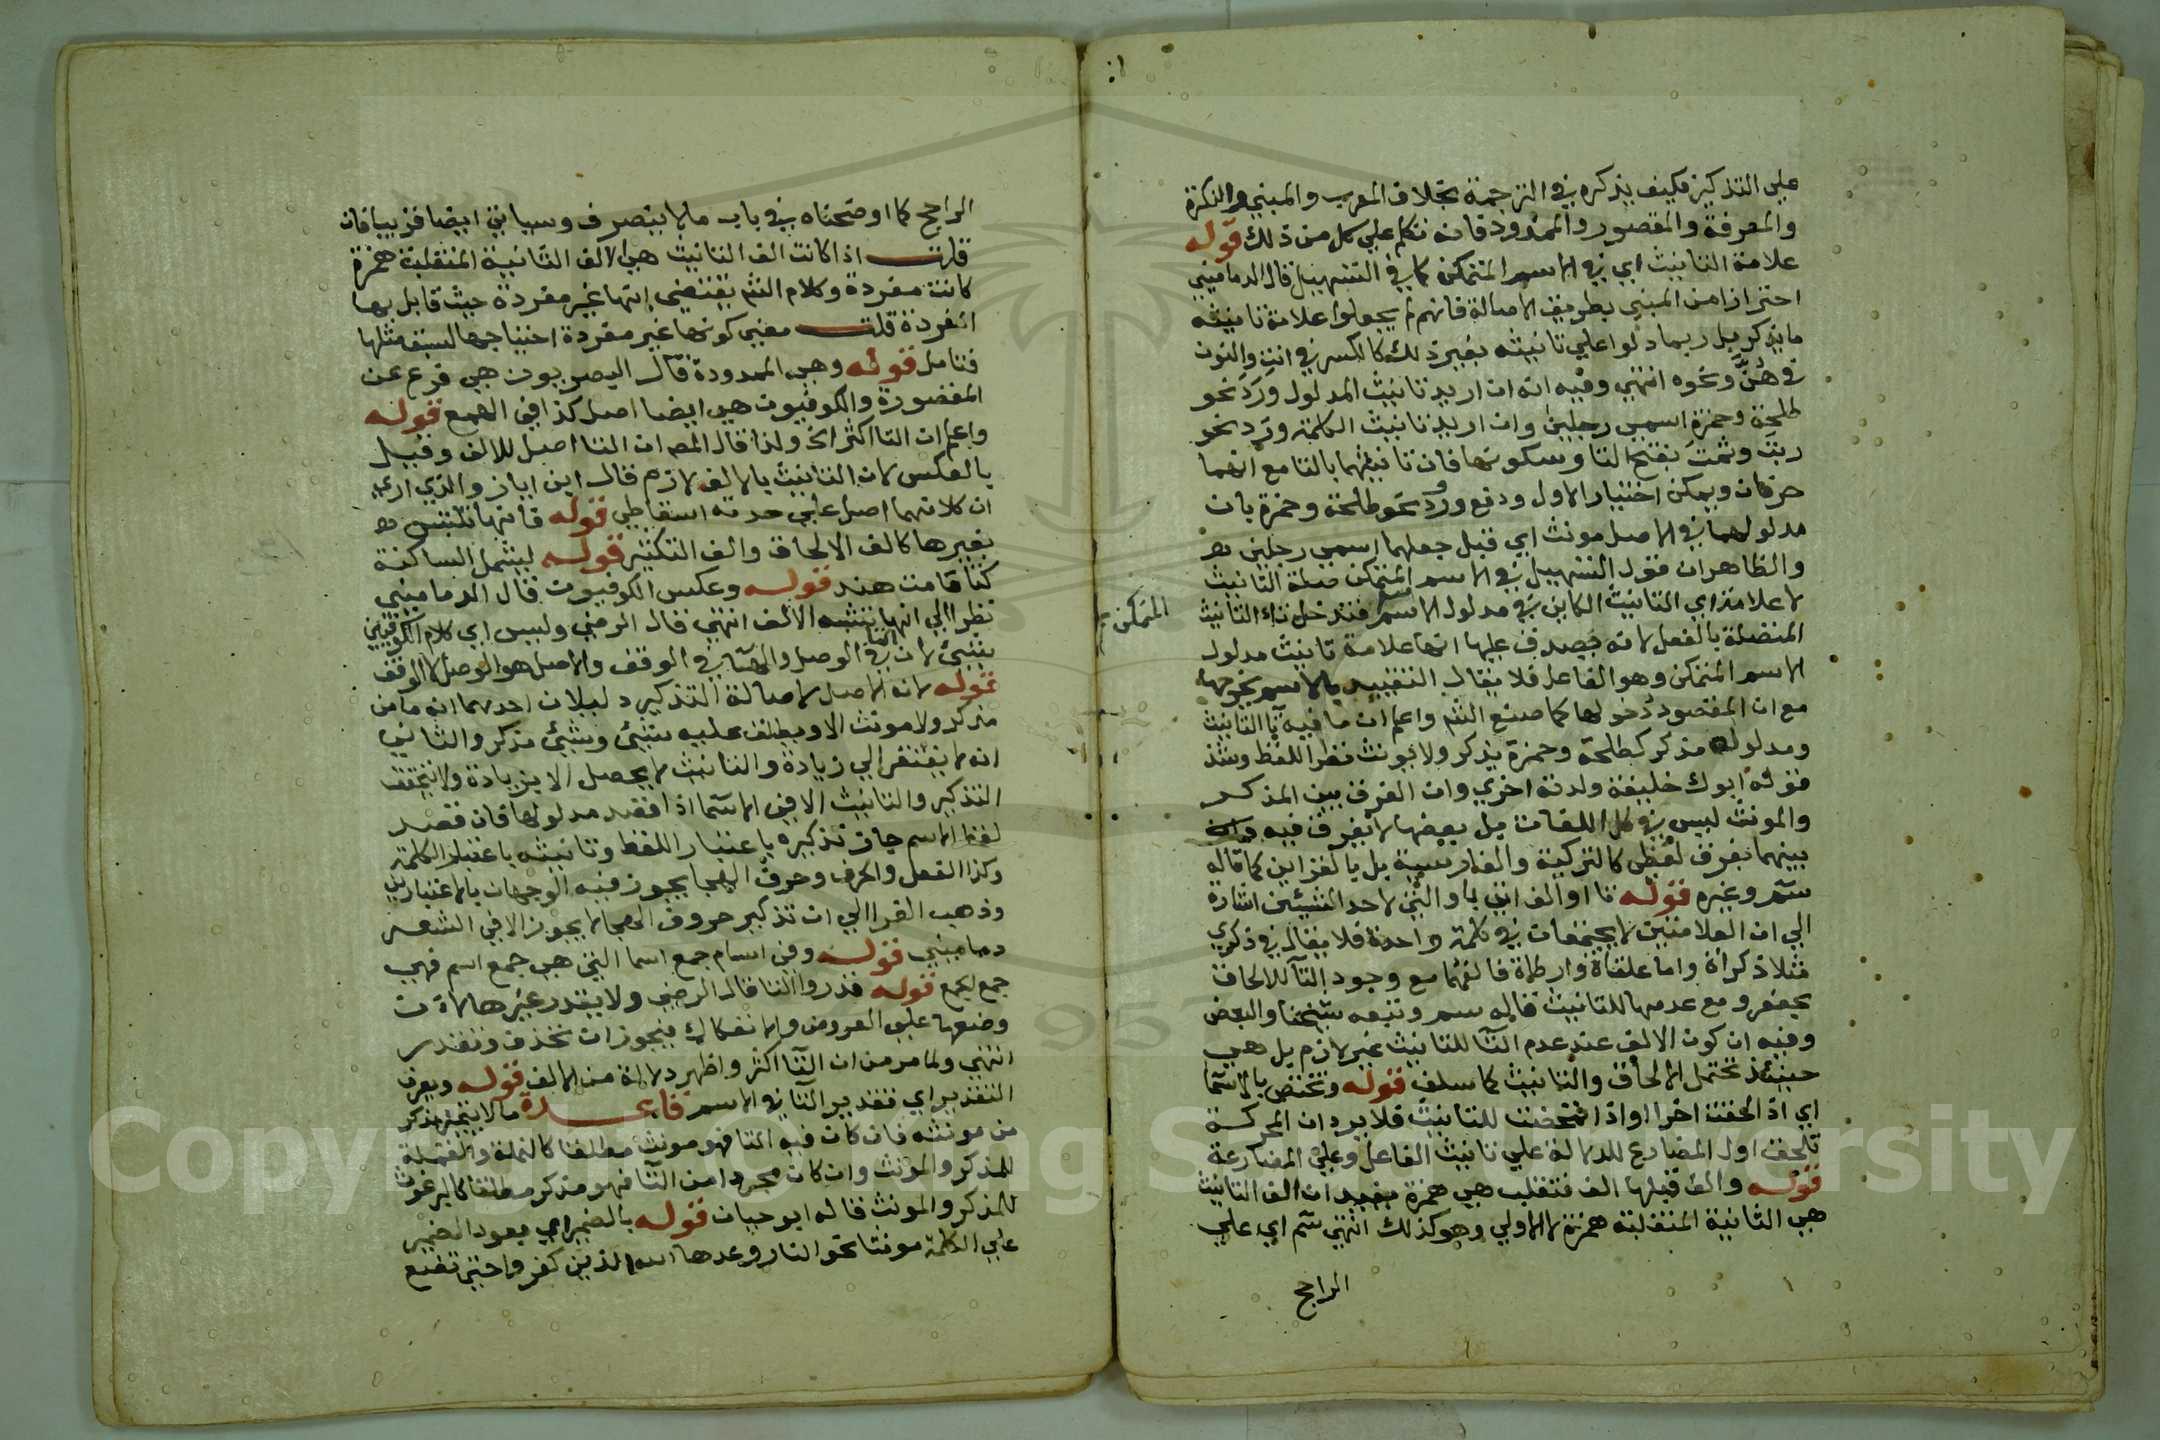 على التذكير فكيف يذكره في الترجمة بخلاف المعرب والمبني والنكرة
والمعرفة والمقصور والممدود فانه تكلم على كل من ذلك قوله
علامة التانيث اي في الاسم المتمكن كما في التسهيل قال الدماميني
احترازا من المبني بطريق الاصالة فانهم لم يجعلوا علامة تانيثه
ما يذكر بل ربما دلوا على تانيثه بغير ذلك كالكسر في انتِ والنون
في هنَّ ونحوه انتهى وفيه انه ان اريد تانيث المدلول ورد نحو
طلحة وحمزة اسمي رجلين وان اريد تانيث الكلمة ورد نحو
ربتَ وثمتَ بفتح التا وسكونها فان تانيثهما بالتا مع انهما
حرفان ويمكن اختيار الاول ودفع ورود نحو طلحة وحمزة بان
مدلولهما في الاصل مونث اي قبل جعلهما اسمي رجلين
والظاهر ان قول التسهيل في الاسم المتمكن صلة التانيث
لا علامة اي التانيث الكاين في مدلول الاسم فتدخل تاء التانيث
المتمكن
المتصلة بالفعل لانه يصدق عليها انها علامة تانيث مدلول
الاسم المتمكن وهو الفاعل فلا يقال التقييد بالاسم يخرجها
مع ان المقصود دخولها كما صنع الشم واعلم ان ما فيه تا التانيث
ومدلوله مذكر كطلحة وحمزة يذكر ولا يونث نظرا للفظ وشذ
قوله ابوك خليفة ولدته اخري وان الفرق بين المذكر
والمونث ليس في كل اللغات بل بعضها لا يفرق فيه
بينهما بفرق لفظي كالتركية والفارسية بل بالقراين كما قاله
سم وغيره قوله تا او الف اتي باو التي لاحد الشيئين اشارة
الي ان العلامتين لا يجتمعان في كلمة واحدة فلا يقال في ذكري
مثلا ذكراة واما علقاة وارطاة فالفهما مع وجود التا للالحاق
بجعفر ومع عدمها للتانيث قاله سم وتبعه شيخنا والبعض
وفيه ان كون الالف عند عدم التا للتانيث غير لازم بل هي
حينئذ تحتمل الالحاق والتانيث كما سلف قوله وتختص بالاسما
اي اذ الحقت اخرا او اذا تمحضت للتانيث فلا يرد ان المحركة
تلحق اول المضارع للدلالة علي تانيث الفاعل وعلى المضارعة
قوله والف قبلها الف فتقلب هي همزة يفيد ان الف التانيث
هي الثانية المنقلبة همزة لا الاولي وهو كذلك انتهي سم اي علي
الراجح
الراجح كما اوضحناه في باب ما لا ينصرف وسياتي ايضا قريبا فان
قلت اذا كانت الف التانيث هي الالف الثانية المنقلبة همزة
كانت مفردة وكلام الشم يقتضي انها غير مفردة حيث قابل بها
المفردة قلت معني كونها غير مفردة احتياجها لسبق مثلها
فتامل قوله وهي الممدودة قال البصريون هي فرع عن
المقصورة والكوفيون هي ايضا اصل كذا في الهمع قوله
واعلم ان التا اكثر الخ ولذا قال المص ان التا اصل للالف وقيل
بالعكس لان التانيث بالالف لازم قال ابن اياز والذي اراه
ان كلا منهما اصل علي حدته اسقاطي قوله فانها تلتبس
بغيرها كالف الالحاق والف التكثير قوله ليشمل الساكنة
كتا قامت هند قوله وعكس الكوفيون قال الدماميني
نظرا الي انها تشبه الالف انتهي قال الرضي وليس اي كلام الكوفيين
بشيء لان التا في الوصل والها في الوقف والاصل هو الوصل لا الوقف
قوله لانه الاصل لاصالة التذكير دليلان احدهما انه ما من
مذكر ولا مونث الا ويطلق عليه شيء وشيء مذكر والثاني
انه لا يفتقر الي زيادة والتانيث لا يحصل الا بزيادة ولا يتحقق
التذكير والتانيث الا في الاسما اذا قصد مدلولها فان قصد
لفظ الاسم جاز تذكيره باعتبار اللفظ وتانيثه باعتبار الكلمة
وكذا الفعل والحرف وحرف الهجا يجوز فيه الوجهان بالاعتبارين
وذهب الفرا الي ان تذكير حروف الهجا لا يجوز الا في الشعر
دماميني قوله وفي اسام جمع اسما التي هي جمع اسم فهي
جمع الجمع قوله قدروا التا قال الرضي ولا يقدر غيرها لان
وضعها علي العروض والانفكاك فيجوز ان تحذف وتقدر
انتهي ولما مر من ان التا اكثر واظهر دلالة من الالف قوله ويعرف
التقدير اي تقدير التا في الاسم قاعدة ما لا يتميز مذكره
من مونثه فان كان فيه التا فهو مونث مطلقا كالنملة والقملة
للمذكر والمونث وان كان مجردا من التا فهو مذكر مطلقا كالبرغوث
للمذكر والمونث قاله ابو حيان قوله بالضمير اي يعود الضمير
علي الكلمة مونثا نحو النار وعدها الله الذين كفروا حتي تضع
Copyright © King Saud University
1957